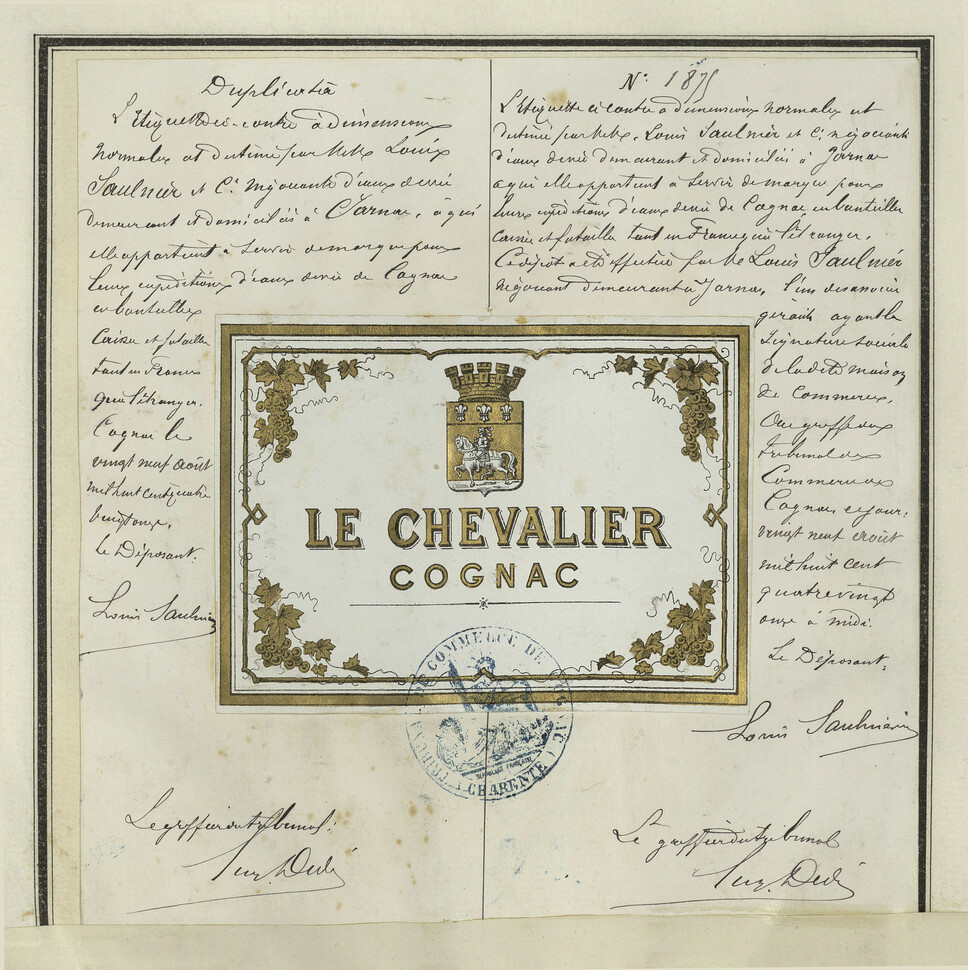 Duplicata
L'Etiquette ci-contre à dimensions
normales est destiné par M.M. Louis
Saulnier et Cie négociants d'eaux de vie
demeurant et domiciliés à Jarnac, à qui
elle appartient à servir de marque pour
leurs expéditions d'eaux de vie de Cognac
en bouteilles
Caisses et futailles
tant en France
qu'à l'étranger.
Cognac le
vingt neuf août
mil huit cent quatre
vingt onze.
Le Déposant.
Louis Saulnier
N° 1875
L'Etiquette ci contre à dimensions normales est
destiné par M.M. Louis Saulnier et Cie négociants
d'eaux de vie demeurant et domiciliés à Jarnac
à qui elle appartient à servir de marque pour
leurs expéditions d'eaux de vie de Cognac en bouteilles
caisses et futailles tant en France qu'à l'étranger.
Ce dépôt a été effectué par M. Louis Saulnier
négociant demeurant à Jarnac, l'un des associés
gérants ayant la
signature sociale
de la dite maison
de Commerce,
Au greffe du
tribunal de
Commerce de
Cognac, ce jour:
vingt neuf août
mil huit cent
quatre vingt
onze à midi.
Le Déposant:
Louis Saulnier
LE CHEVALIER
COGNAC
TRIBUNAL DE COMMERCE DE COGNAC
(CHARENTE)
RÉPUBLIQUE FRANÇAISE
Le greffier du tribunal:
Le greffier du tribunal